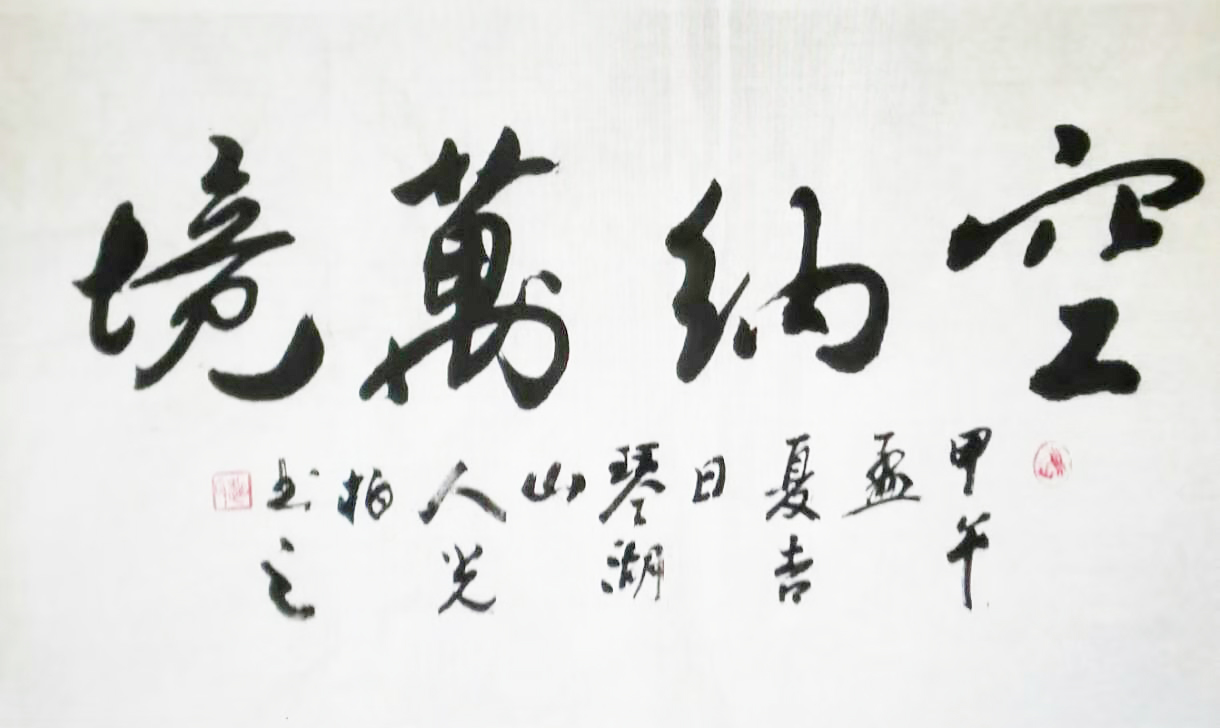 空納萬境
甲午
孟
夏吉
日
琴湖
山
人光
柏
书之